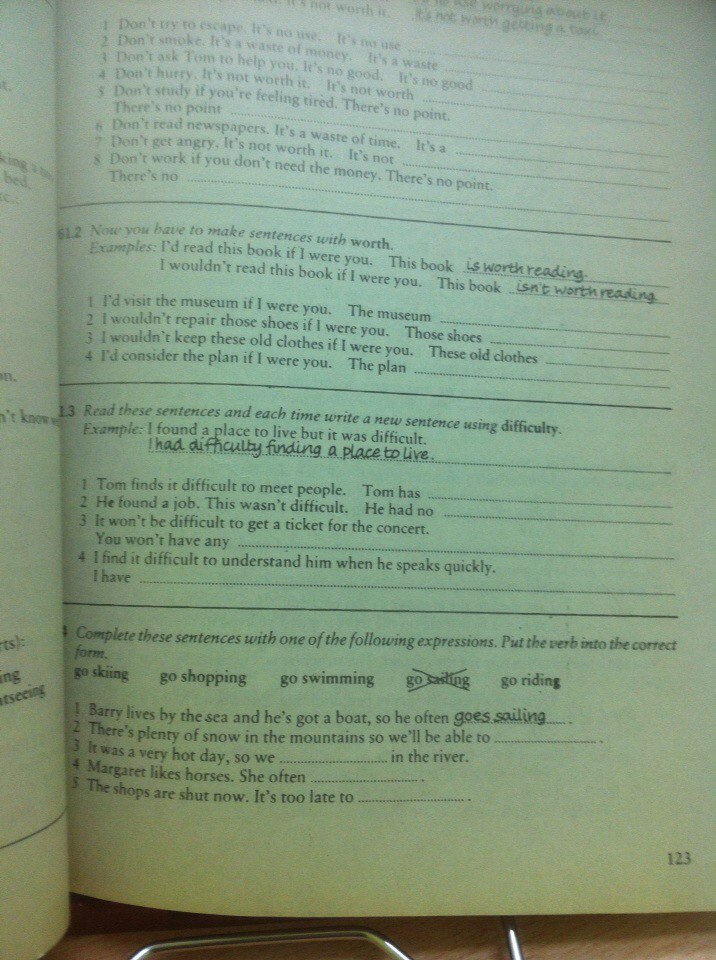 it's not worth it.
no use worrying about it
it's not worth getting a taxi.
1 Don't try to escape. It's no use. It's no use
2 Don't smoke. It's a waste of money. It's a waste
3 Don't ask Tom to help you. It's no good. It's no good
4 Don't hurry. It's not worth it. It's not worth
5 Don't study if you're feeling tired. There's no point.
There's no point
6 Don't read newspapers. It's a waste of time. It's a
7 Don't get angry. It's not worth it. It's not
8 Don't work if you don't need the money. There's no point.
There's no
61.2 Now you have to make sentences with worth.
Examples: I'd read this book if I were you. This book is worth reading.
I wouldn't read this book if I were you. This book isn't worth reading
1 I'd visit the museum if I were you. The museum
2 I wouldn't repair those shoes if I were you. Those shoes
3 I wouldn't keep these old clothes if I were you. These old clothes
4 I'd consider the plan if I were you. The plan
1.3 Read these sentences and each time write a new sentence using difficulty.
Example: I found a place to live but it was difficult.
I had difficulty finding a place to live.
1 Tom finds it difficult to meet people. Tom has
2 He found a job. This wasn't difficult. He had no
3 It won't be difficult to get a ticket for the concert.
You won't have any
4 I find it difficult to understand him when he speaks quickly.
I have
4 Complete these sentences with one of the following expressions. Put the verb into the correct
form.
go skiing go shopping go swimming go sailing go riding
1 Barry lives by the sea and he's got a boat, so he often goes sailing.
2 There's plenty of snow in the mountains so we'll be able to .
3 It was a very hot day, so we in the river.
4 Margaret likes horses. She often .
5 The shops are shut now. It's too late to .
123
king a
bed.
on.
n't know
rts):
ing
tseeing